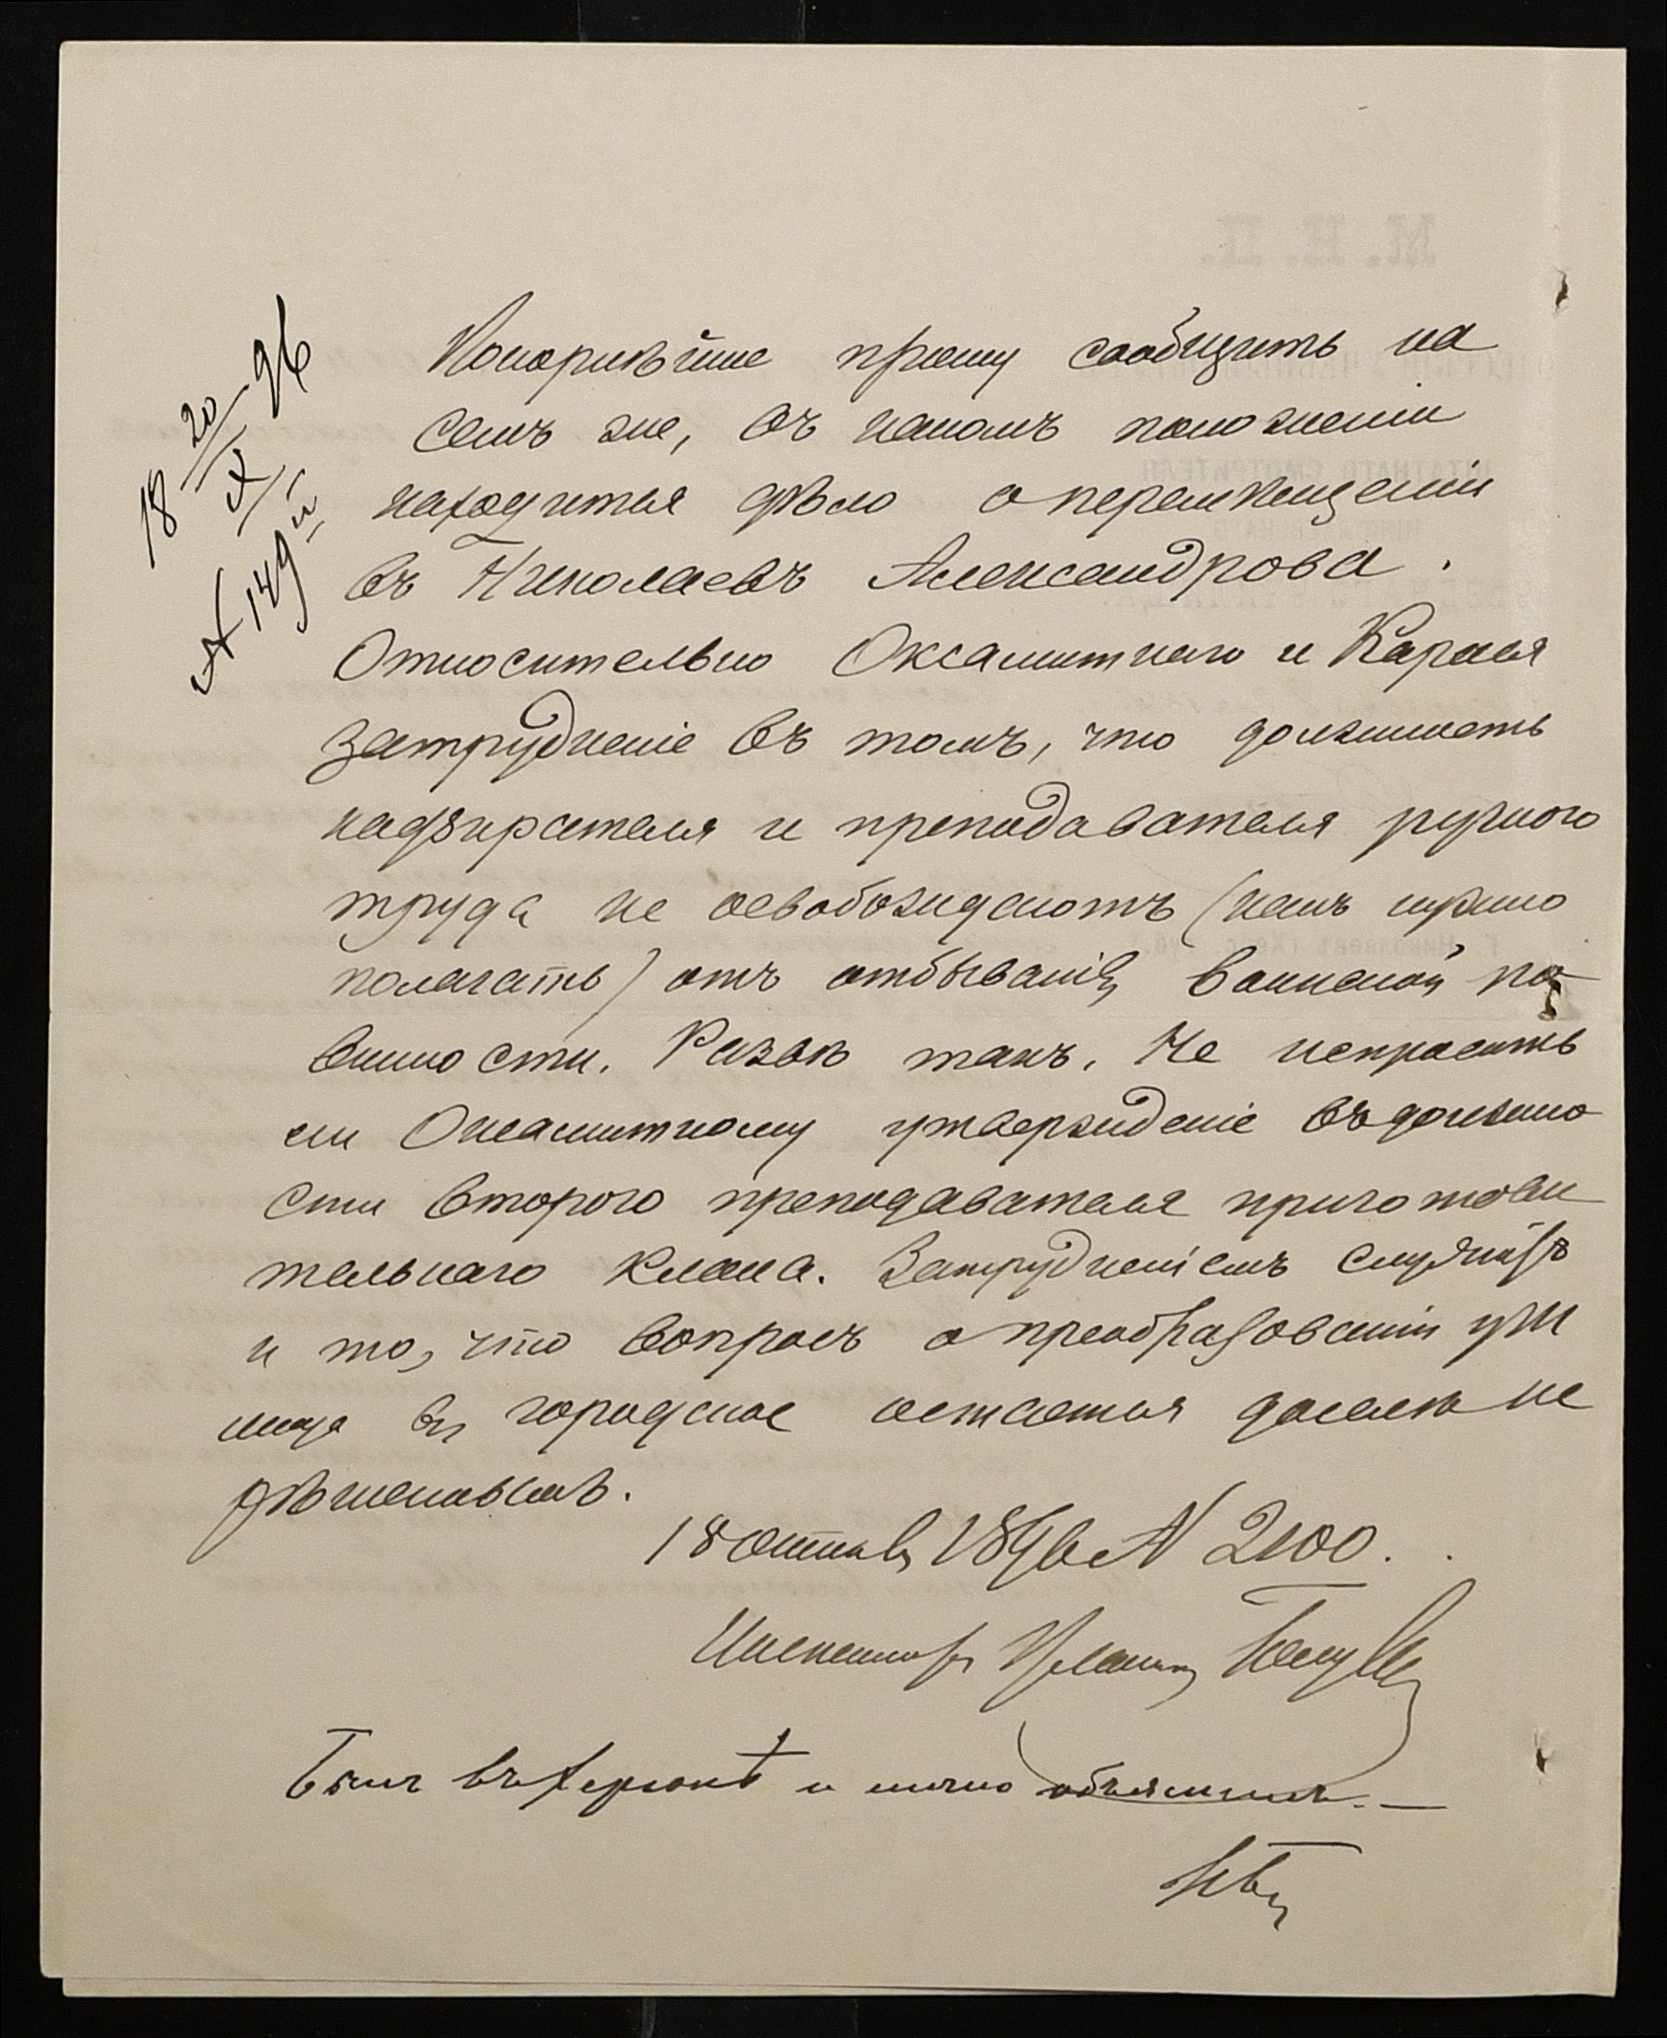 18 20/X 96
№ 149й
Покорнѣйше прошу сообщить на
семъ же, въ какомъ положеніи
находится дѣло о перемѣщеніи
въ Николаевъ Александрова.
Относительно Оксамитнаго и Карася
затрудненіе въ томъ, что должность
надзирателя и преподавателя ручного
труда не освобождаютъ (какъ нужно
полагать) отъ отбыванія воинской по-
винности. Развѣ такъ. Не испросить
ли Оксамитному утвержденіе въ должно
сти второго преподавателя приготови
тельнаго класса. Затрудненіемъ служитъ
и то, что вопросъ о преобразованіи учи
лища въ городское остается доселѣ не
рѣшеннымъ.
18 октяб 1896 № 2100.
Инспекторъ
Былъ въ Херсонѣ и лично объяснилъ. —